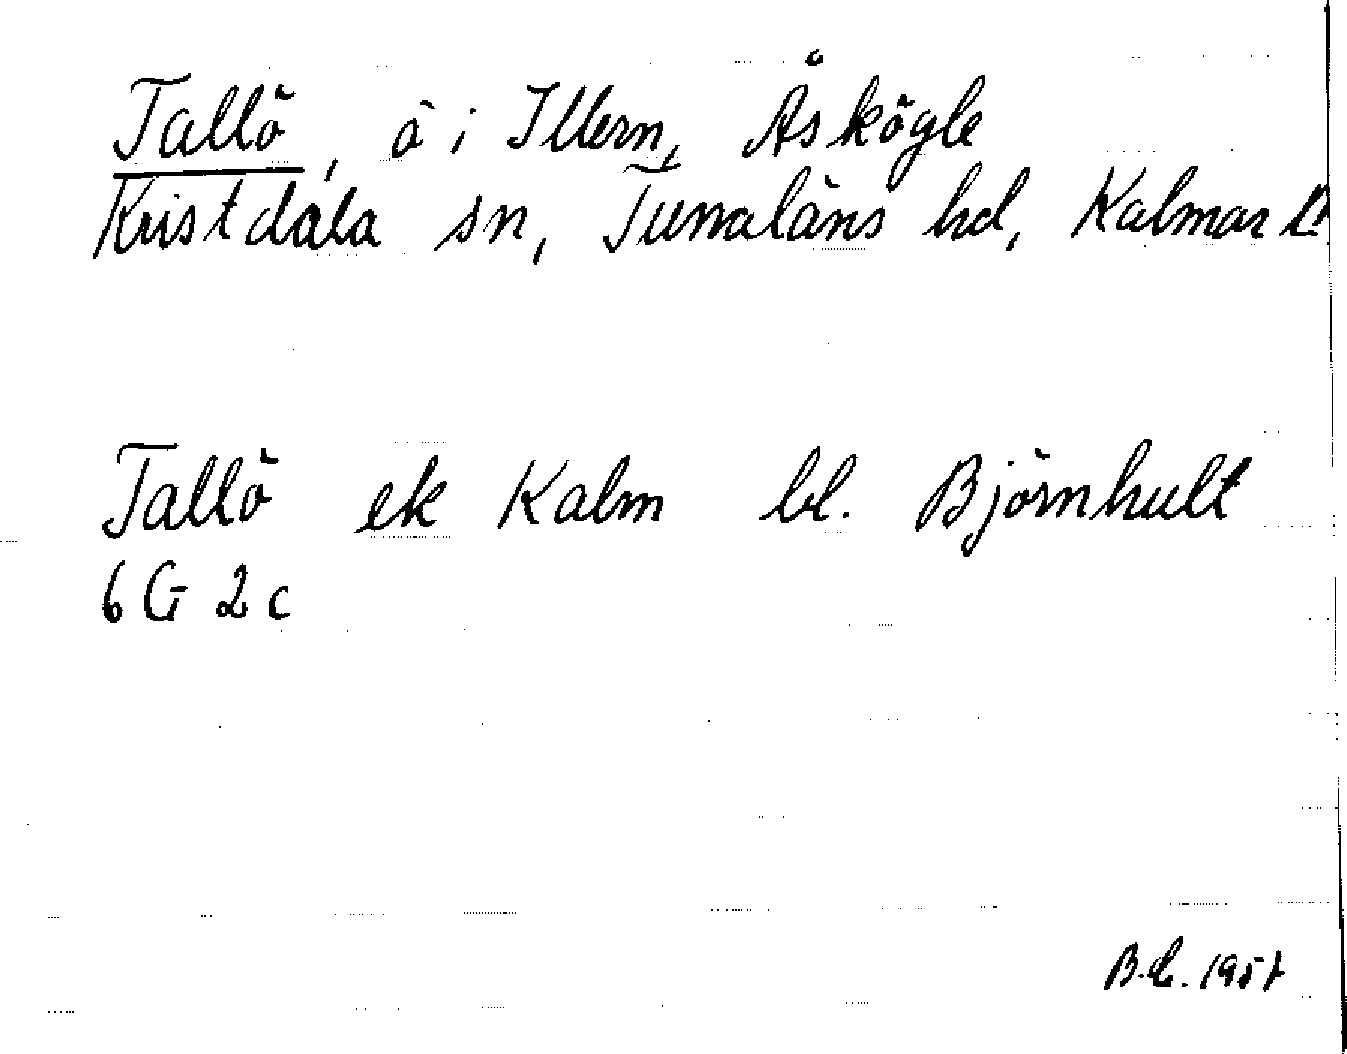 Tallö, ö i Illern, Åskögle
Kristdala sn, Tunaläns hd, Kalmar l.
Tallö ek Kalm bl. Björnhult
6 G 2 c
1957